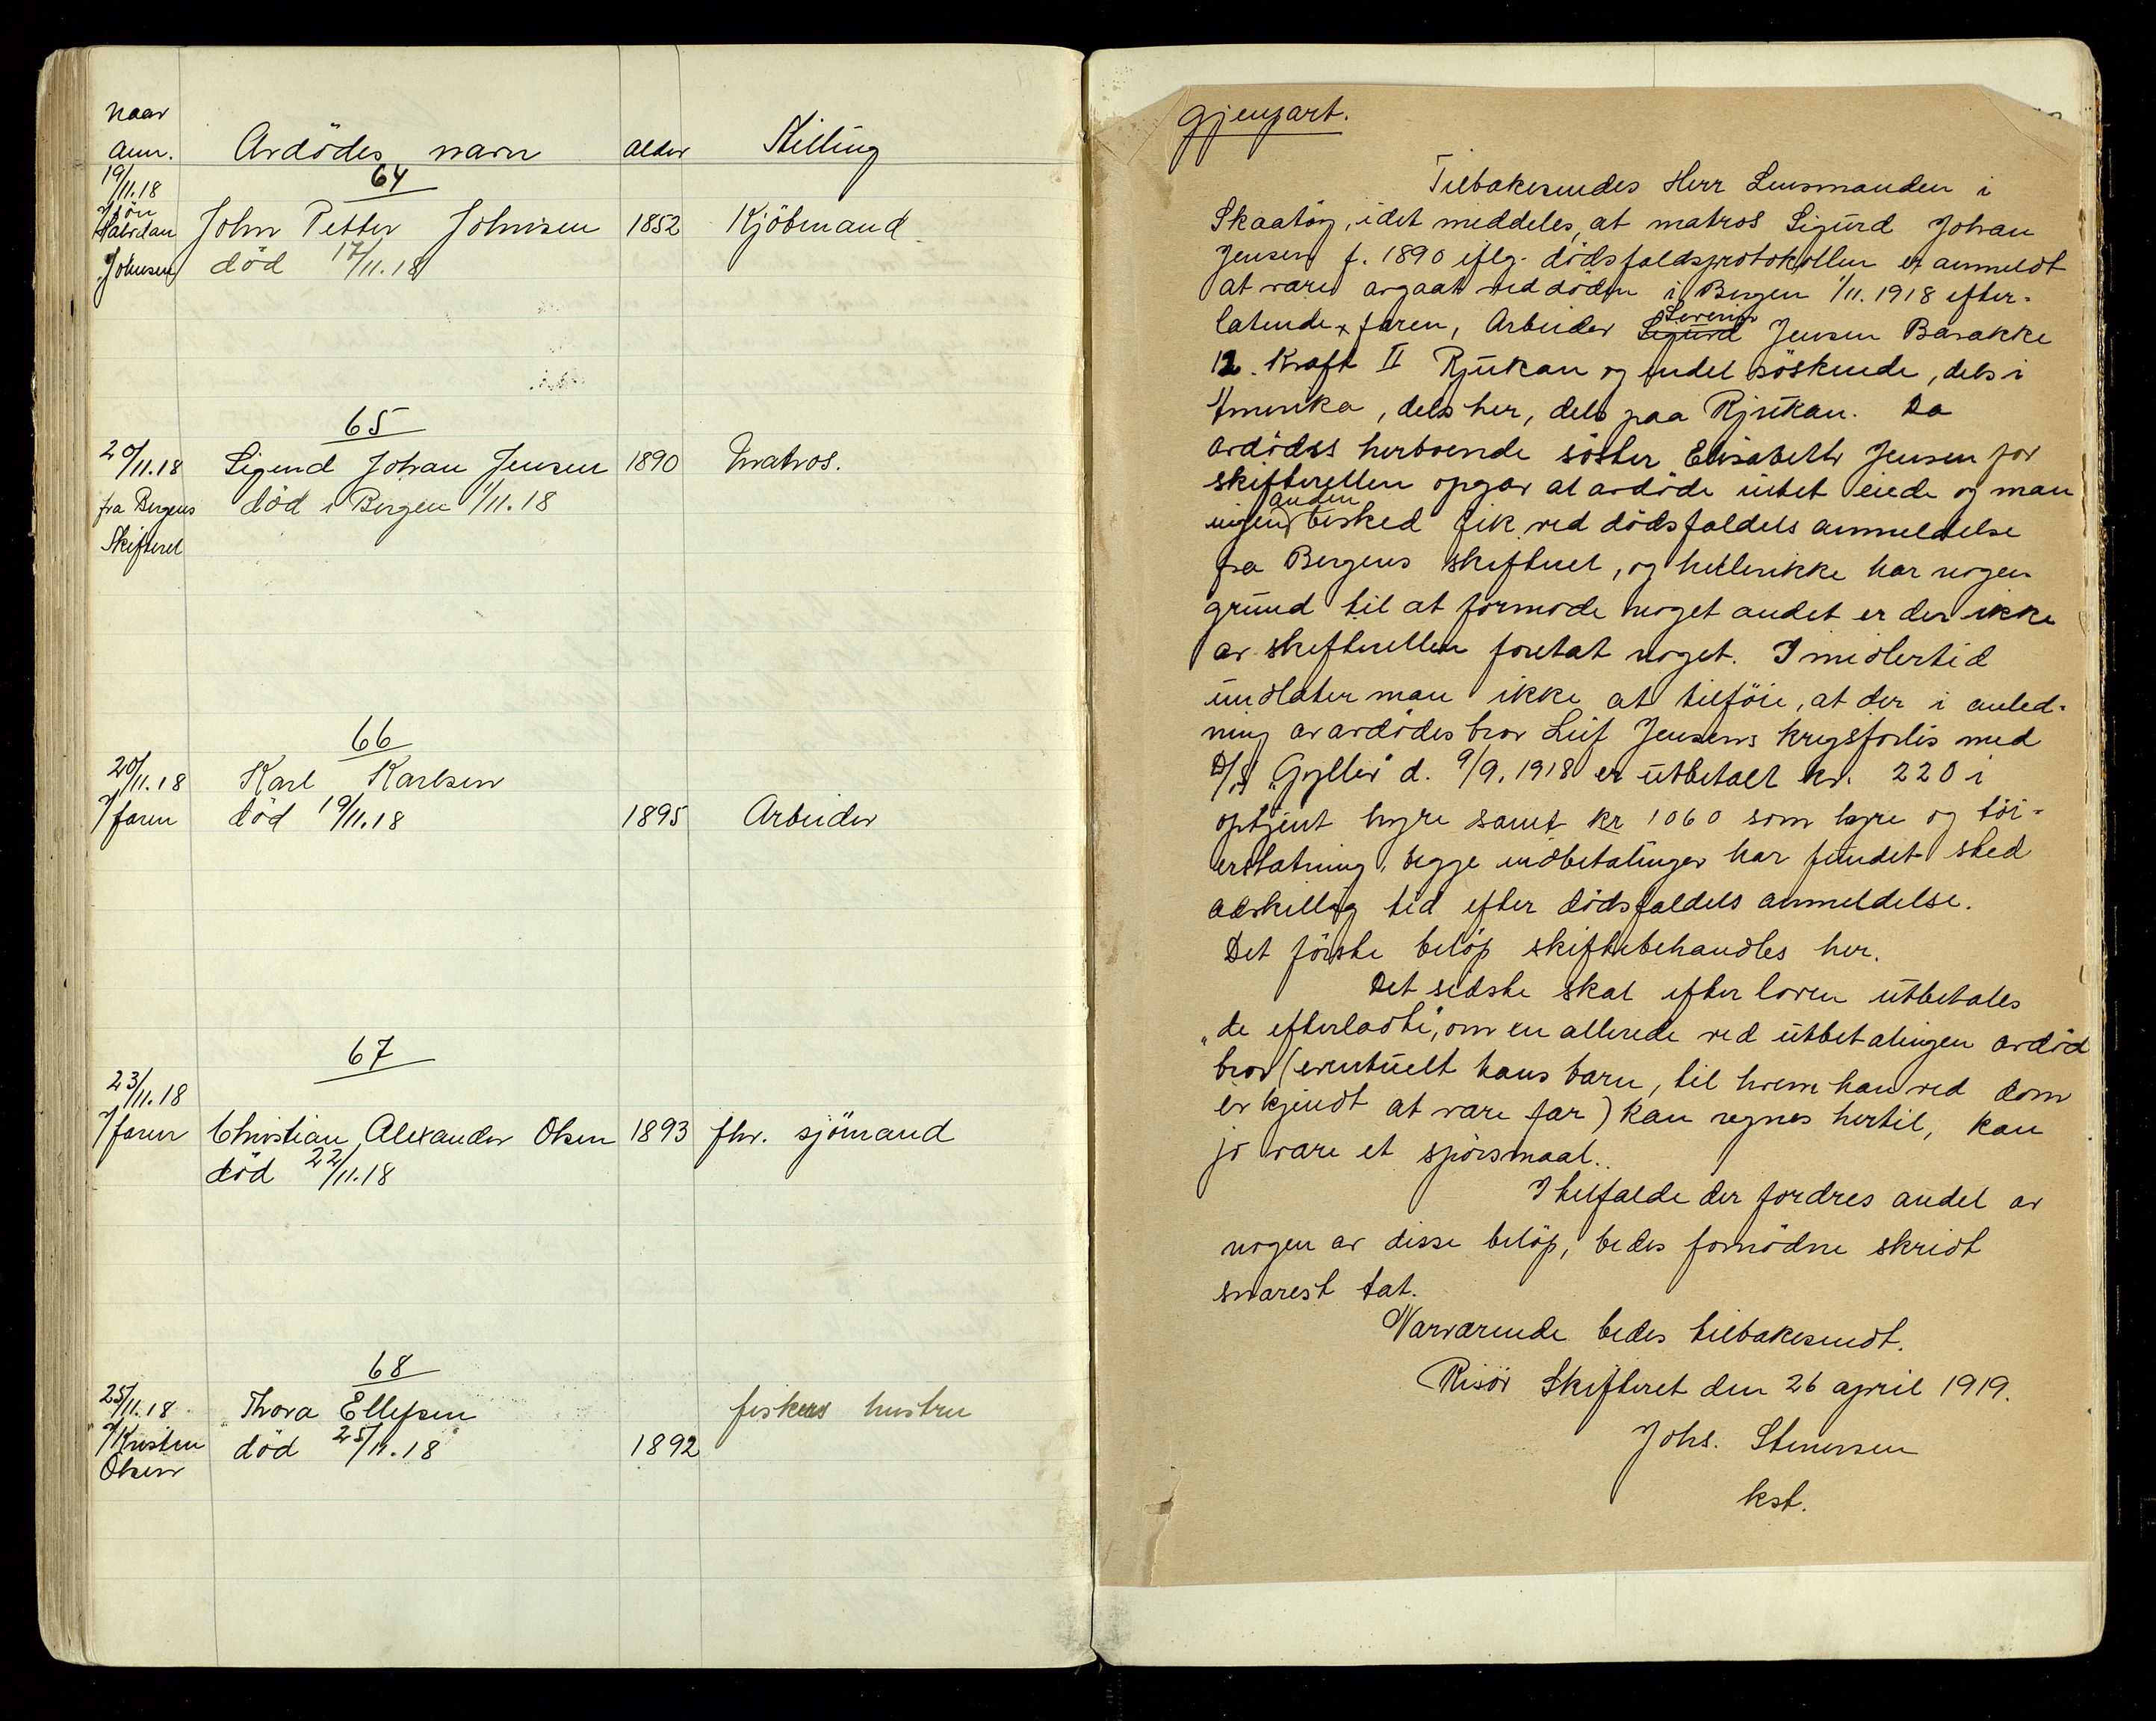 naar
anm. Avdödes navn alder Stilling
64
19/11.18
v/sön
Halvdan John Petter Johnsen 1852 Kjöbmand
Johnsen död 17/11.18
65
20/11.18 Sigurd Johan Jensen 1890 Matros.
fra Bergens död i Bergen 1/11.18
Skifteret
66
20/11.18 Karl Karlsen
v/faren död 19/11.18 1895 Arbeider
67
23/11.18
v/faren Christian Alexander Olsen 1893 fhv. sjömand
död 22/11.18
68
25/11.18 Thora Ellefsen fiskers hustru
v/Kristen död 25/11.18 1892
Olsen
Gjenpart.
Tilbakesendes Herr Lensmanden i
Skaatöy, idet meddeles, at matros Sigurd Johan
Jensen f. 1890 iflg. dödsfaldsprotokollen er anmeldt
at være avgaat ved döden i Bergen 1/11. 1918 efter-
latende faren, Arbeider Sigurd Severin Jensen Barakke
12. Kraft II Rjukan og endel söskende, dels i
Amerika, dels her, dels paa Rjukan. Da
avdödes herboende söster Elisabeth Jensen for
skifteretten opgav at avdöde intet eiede og man
ingen anden besked fik ved dödsfaldets anmeldelse
fra Bergens skifteret, og hellerikke har nogen
grund til at formode noget andet er der ikke
av skifteretten foretat noget. Imidlertid
undlater man ikke at tilföie, at der i anled-
ning av avdödes bror Leif Jensens krigsforlis med
D/S "Gyller" d. 9/9. 1918 er utbetalt kr. 220 i
optjent hyre samt kr 1060 som hyre og töi-
erstatning, begge indbetalinger har fundet sted
adskillig tid efter dödsfaldets anmeldelse.
Det förste belöp skiftebehandles her.
Det sidste skal efter loven utbetales
"de efterladte", om en allerede ved utbetalingen avdöd
bror (eventuelt hans barn, til hvem han ved dom
er kjendt at være far) kan regnes hertil, kan
jo være et spörsmaal.
I tilfælde der fordres andel av
nogen av disse belöp, bedes fornödne skridt
snarest tat.
Nærværende bedes tilbakesendt.
Risör Skifteret den 26 april 1919.
Johs. Stenersen
kst.